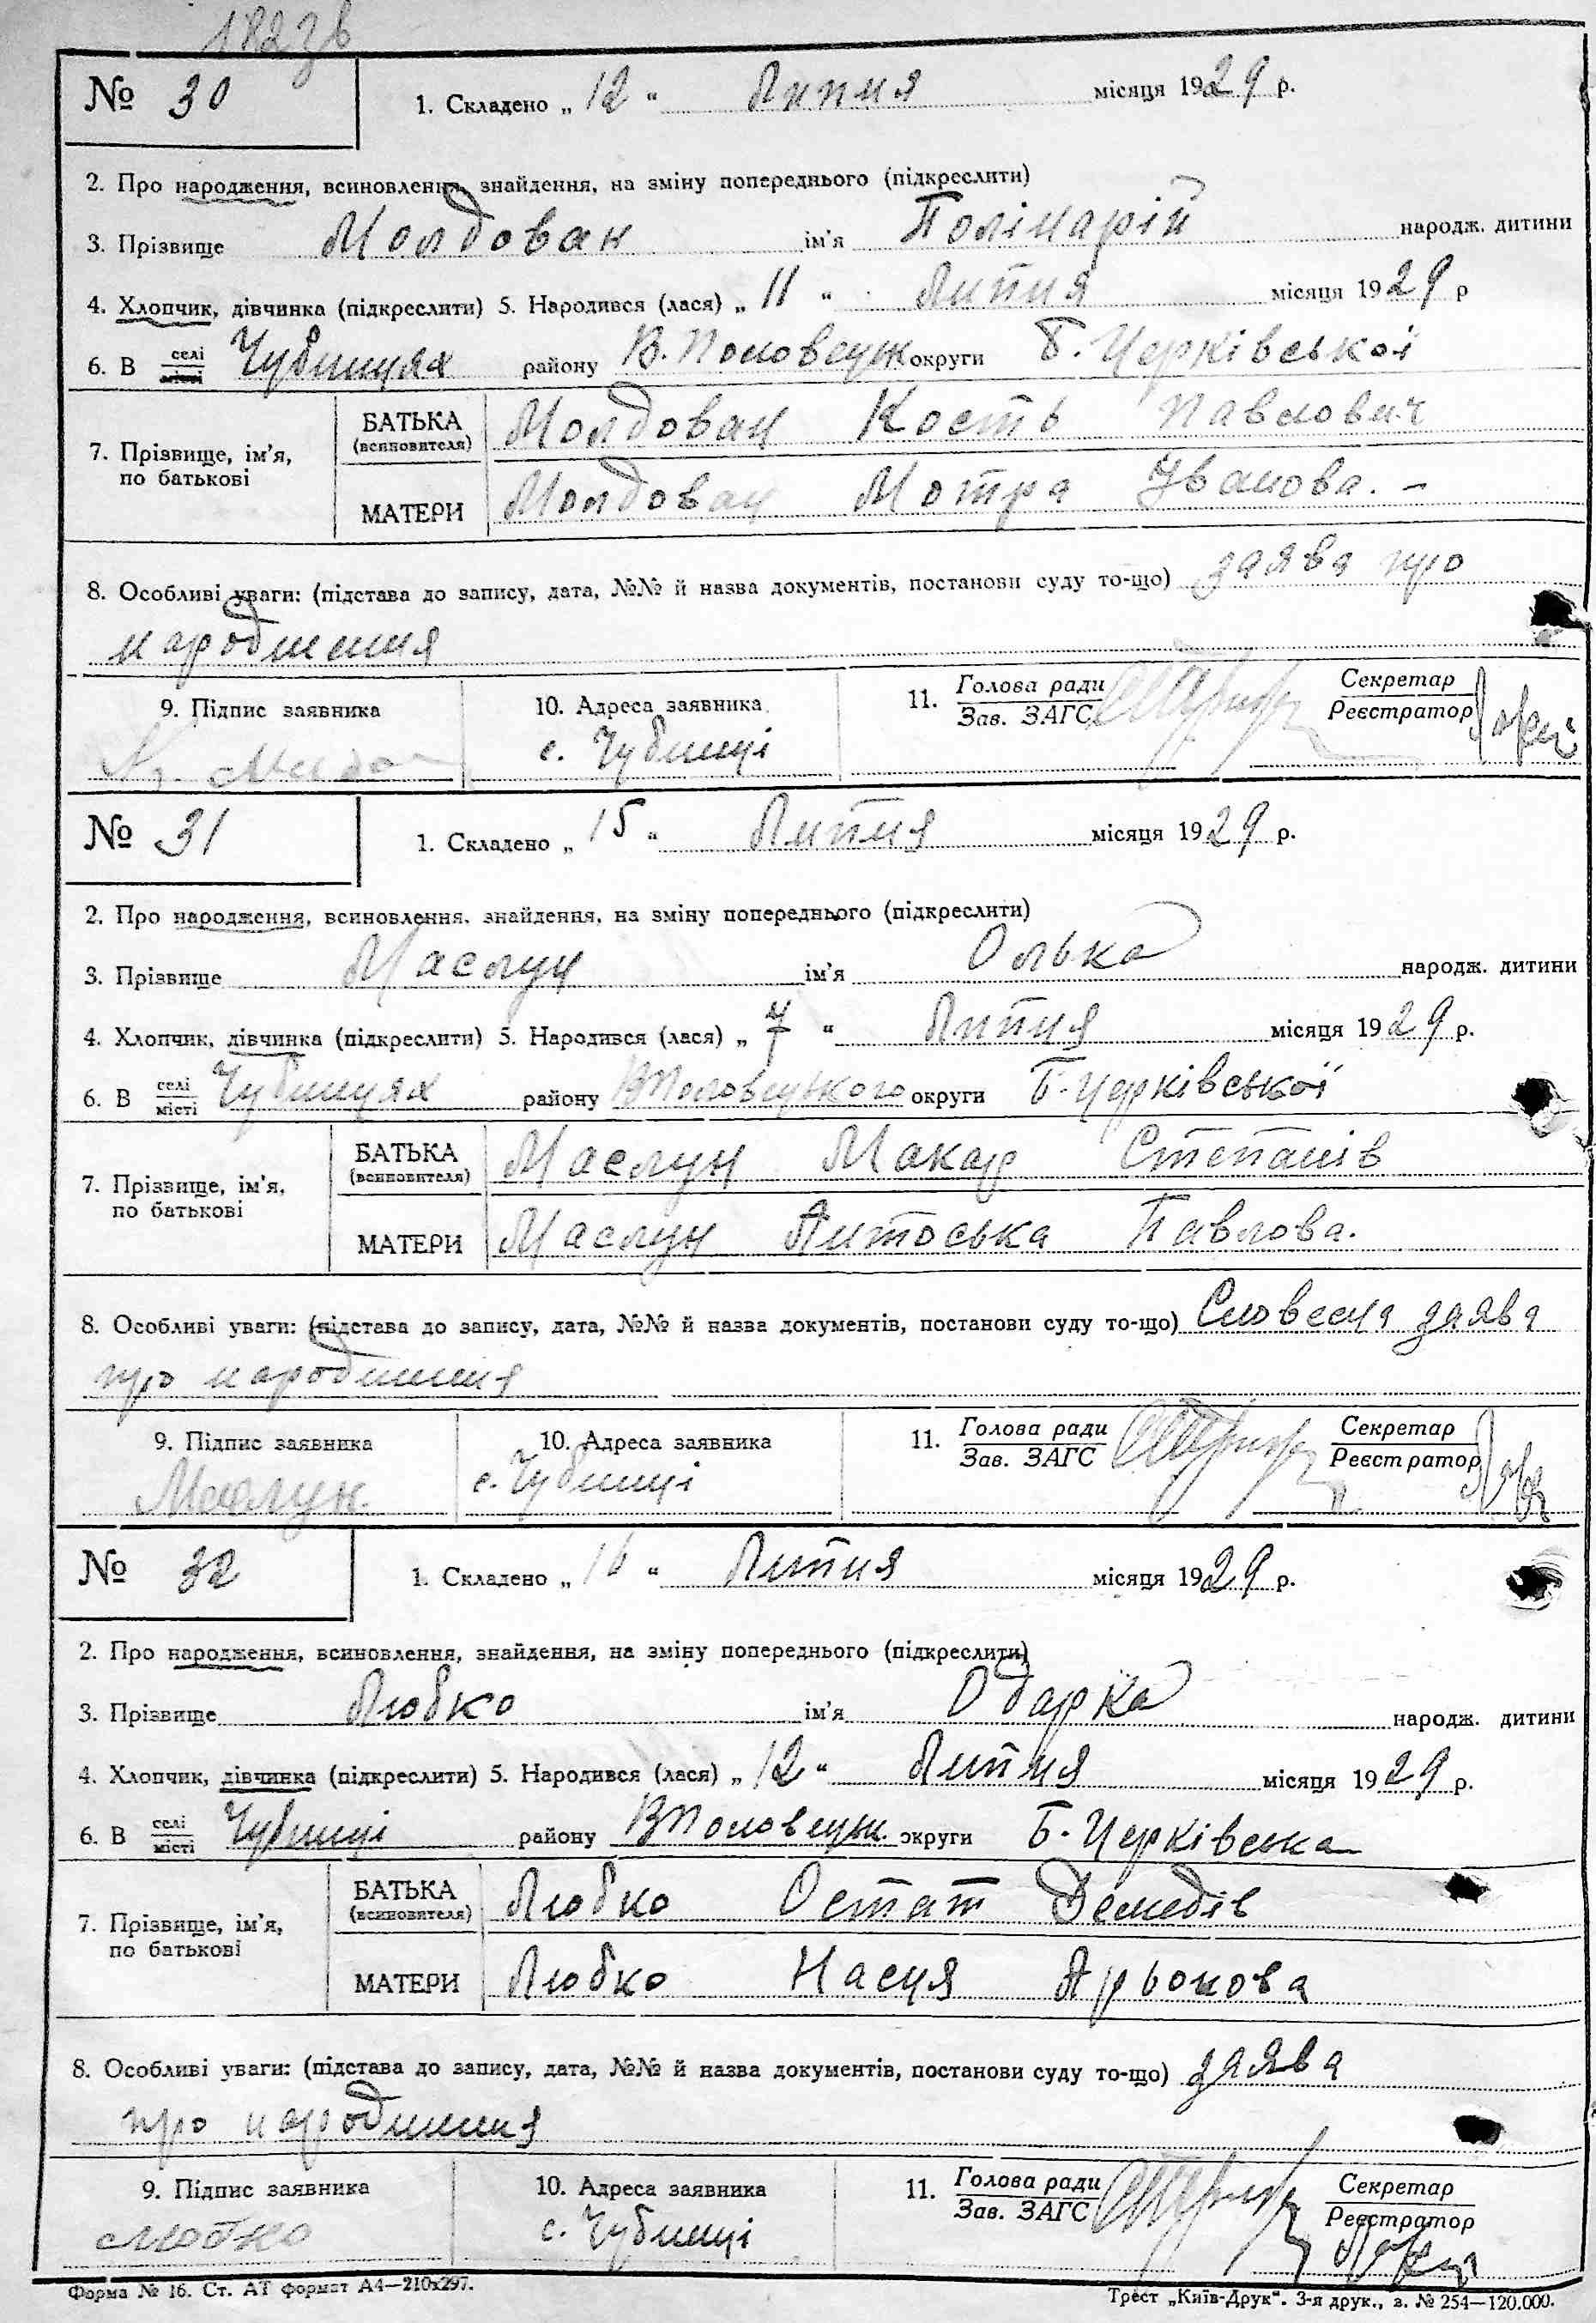 182 зв
№ 30 1. Складено „ 12 “ Липня місяця 1929 р.
2. Про народження, всиновлення, знайдення, на зміну попереднього (підкреслити)
3. Прізвище Молдован ім'я Полікарій народж. дитини
4. Хлопчик, дівчинка (підкреслити) 5. Народився (лася) „ 11 “ Липня місяця 1929 р
6. В селі/місті Чубинцях району В. Половецьк округи Б. Церківської
7. Прізвище, ім'я, по батькові БАТЬКА (всиновителя) Молдован Кость Павлович
МАТЕРИ Молдован Мотря Іванова. –
8. Особливі уваги: (підстава до запису, дата, №№ й назва документів, постанови суду то-що) заява про
народження
9. Підпис заявника 10. Адреса заявника 11. Голова ради/Зав. ЗАГС Секретар/Реєстратор
с. Чубинці
№ 31 1. Складено „ 15 “ Липня місяця 1929 р.
2. Про народження, всиновлення, знайдення, на зміну попереднього (підкреслити)
3. Прізвище Маслун ім'я Олька народж. дитини
4. Хлопчик, дівчинка (підкреслити) 5. Народився (лася) „ 7 “ Липня місяця 1929 р.
6. В селі/місті Чубинцях району ВПоловецького округи Б. Церківської
7. Прізвище, ім'я, по батькові БАТЬКА (всиновителя) Маслун Макар Степанів
МАТЕРИ Маслун Антоська Павлова.
8. Особливі уваги: (підстава до запису, дата, №№ й назва документів, постанови суду то-що) Словесна заява
про народження
9. Підпис заявника 10. Адреса заявника 11. Голова ради/Зав. ЗАГС Секретар/Реєстратор
Маслун с. Чубинці
№ 32 1. Складено „ 16 “ Липня місяця 1929 р.
2. Про народження, всиновлення, знайдення, на зміну попереднього (підкреслити)
3. Прізвище Любко ім'я Одарка народж. дитини
4. Хлопчик, дівчинка (підкреслити) 5. Народився (лася) „ 12 “ Липня місяця 1929 р.
6. В селі/місті Чубинці району ВПоловецьк округи Б. Церківська
7. Прізвище, ім'я, по батькові БАТЬКА (всиновителя) Любко Остап Демедів
МАТЕРИ Любко Насця Арьонова
8. Особливі уваги: (підстава до запису, дата, №№ й назва документів, постанови суду то-що) заява
про народження
9. Підпис заявника 10. Адреса заявника 11. Голова ради/Зав. ЗАГС Секретар/Реєстратор
Любко с. Чубинці
Форма № 16. Ст. АТ формат А4—210x297. Трест „Київ-Друк“. 3-я друк., з. № 254—120.000.